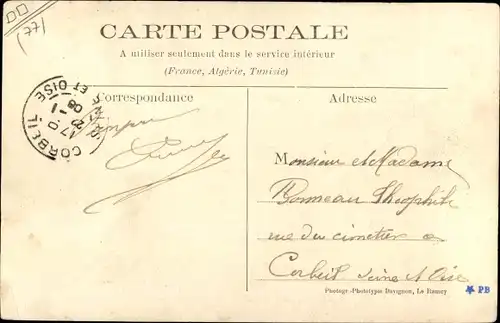 (77)
CARTE POSTALE
A utiliser seulement dans le service intérieur
(France, Algérie, Tunisie)
Correspondance
Adresse
CORBEIL
Sne ET OISE
Monsieur et Madame
Bonneau Théophile
rue du cimetière a
Corbeil Seine & Oise
Photogr-Phototypie Davignon, Le Raincy
PB